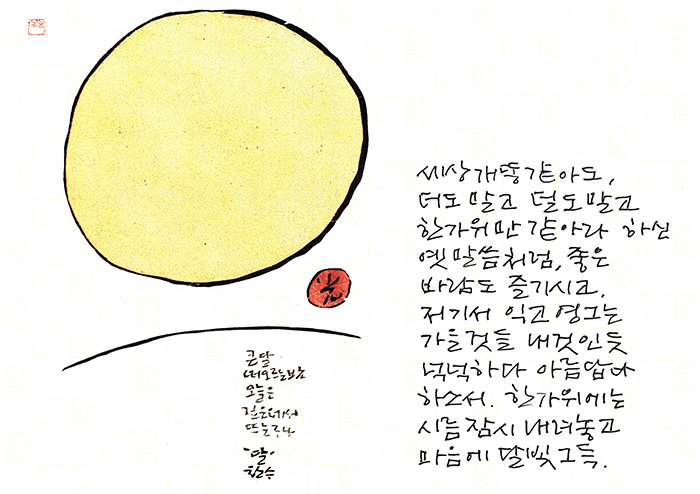 큰 달
떠오르는 보고
오늘은
깊은 데서
뜨는구나
"달"
철수
세상 개똥 같아도,
더도 말고 덜도 말고
한가위만 같아라 하신
옛 말씀처럼, 좋은
바람도 즐기시고,
저기서 익고 영그는
가을것들 내것인듯
넉넉하다 아름답다
하소서. 한가위에는
시름 잠시 내려놓고
마음에 달빛 그득.